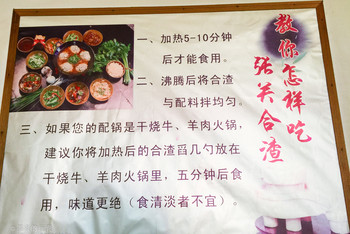 教你怎样吃
张关合渣
一、加热5-10分钟
后才能食用。
二、沸腾后将合渣
与配料拌均匀。
三、如果您的配锅是干烧牛、羊肉火锅，
建议你将加热后的合渣舀几勺放在
干烧牛、羊肉火锅里，五分钟后食
用，味道更绝（食清淡者不宜）。